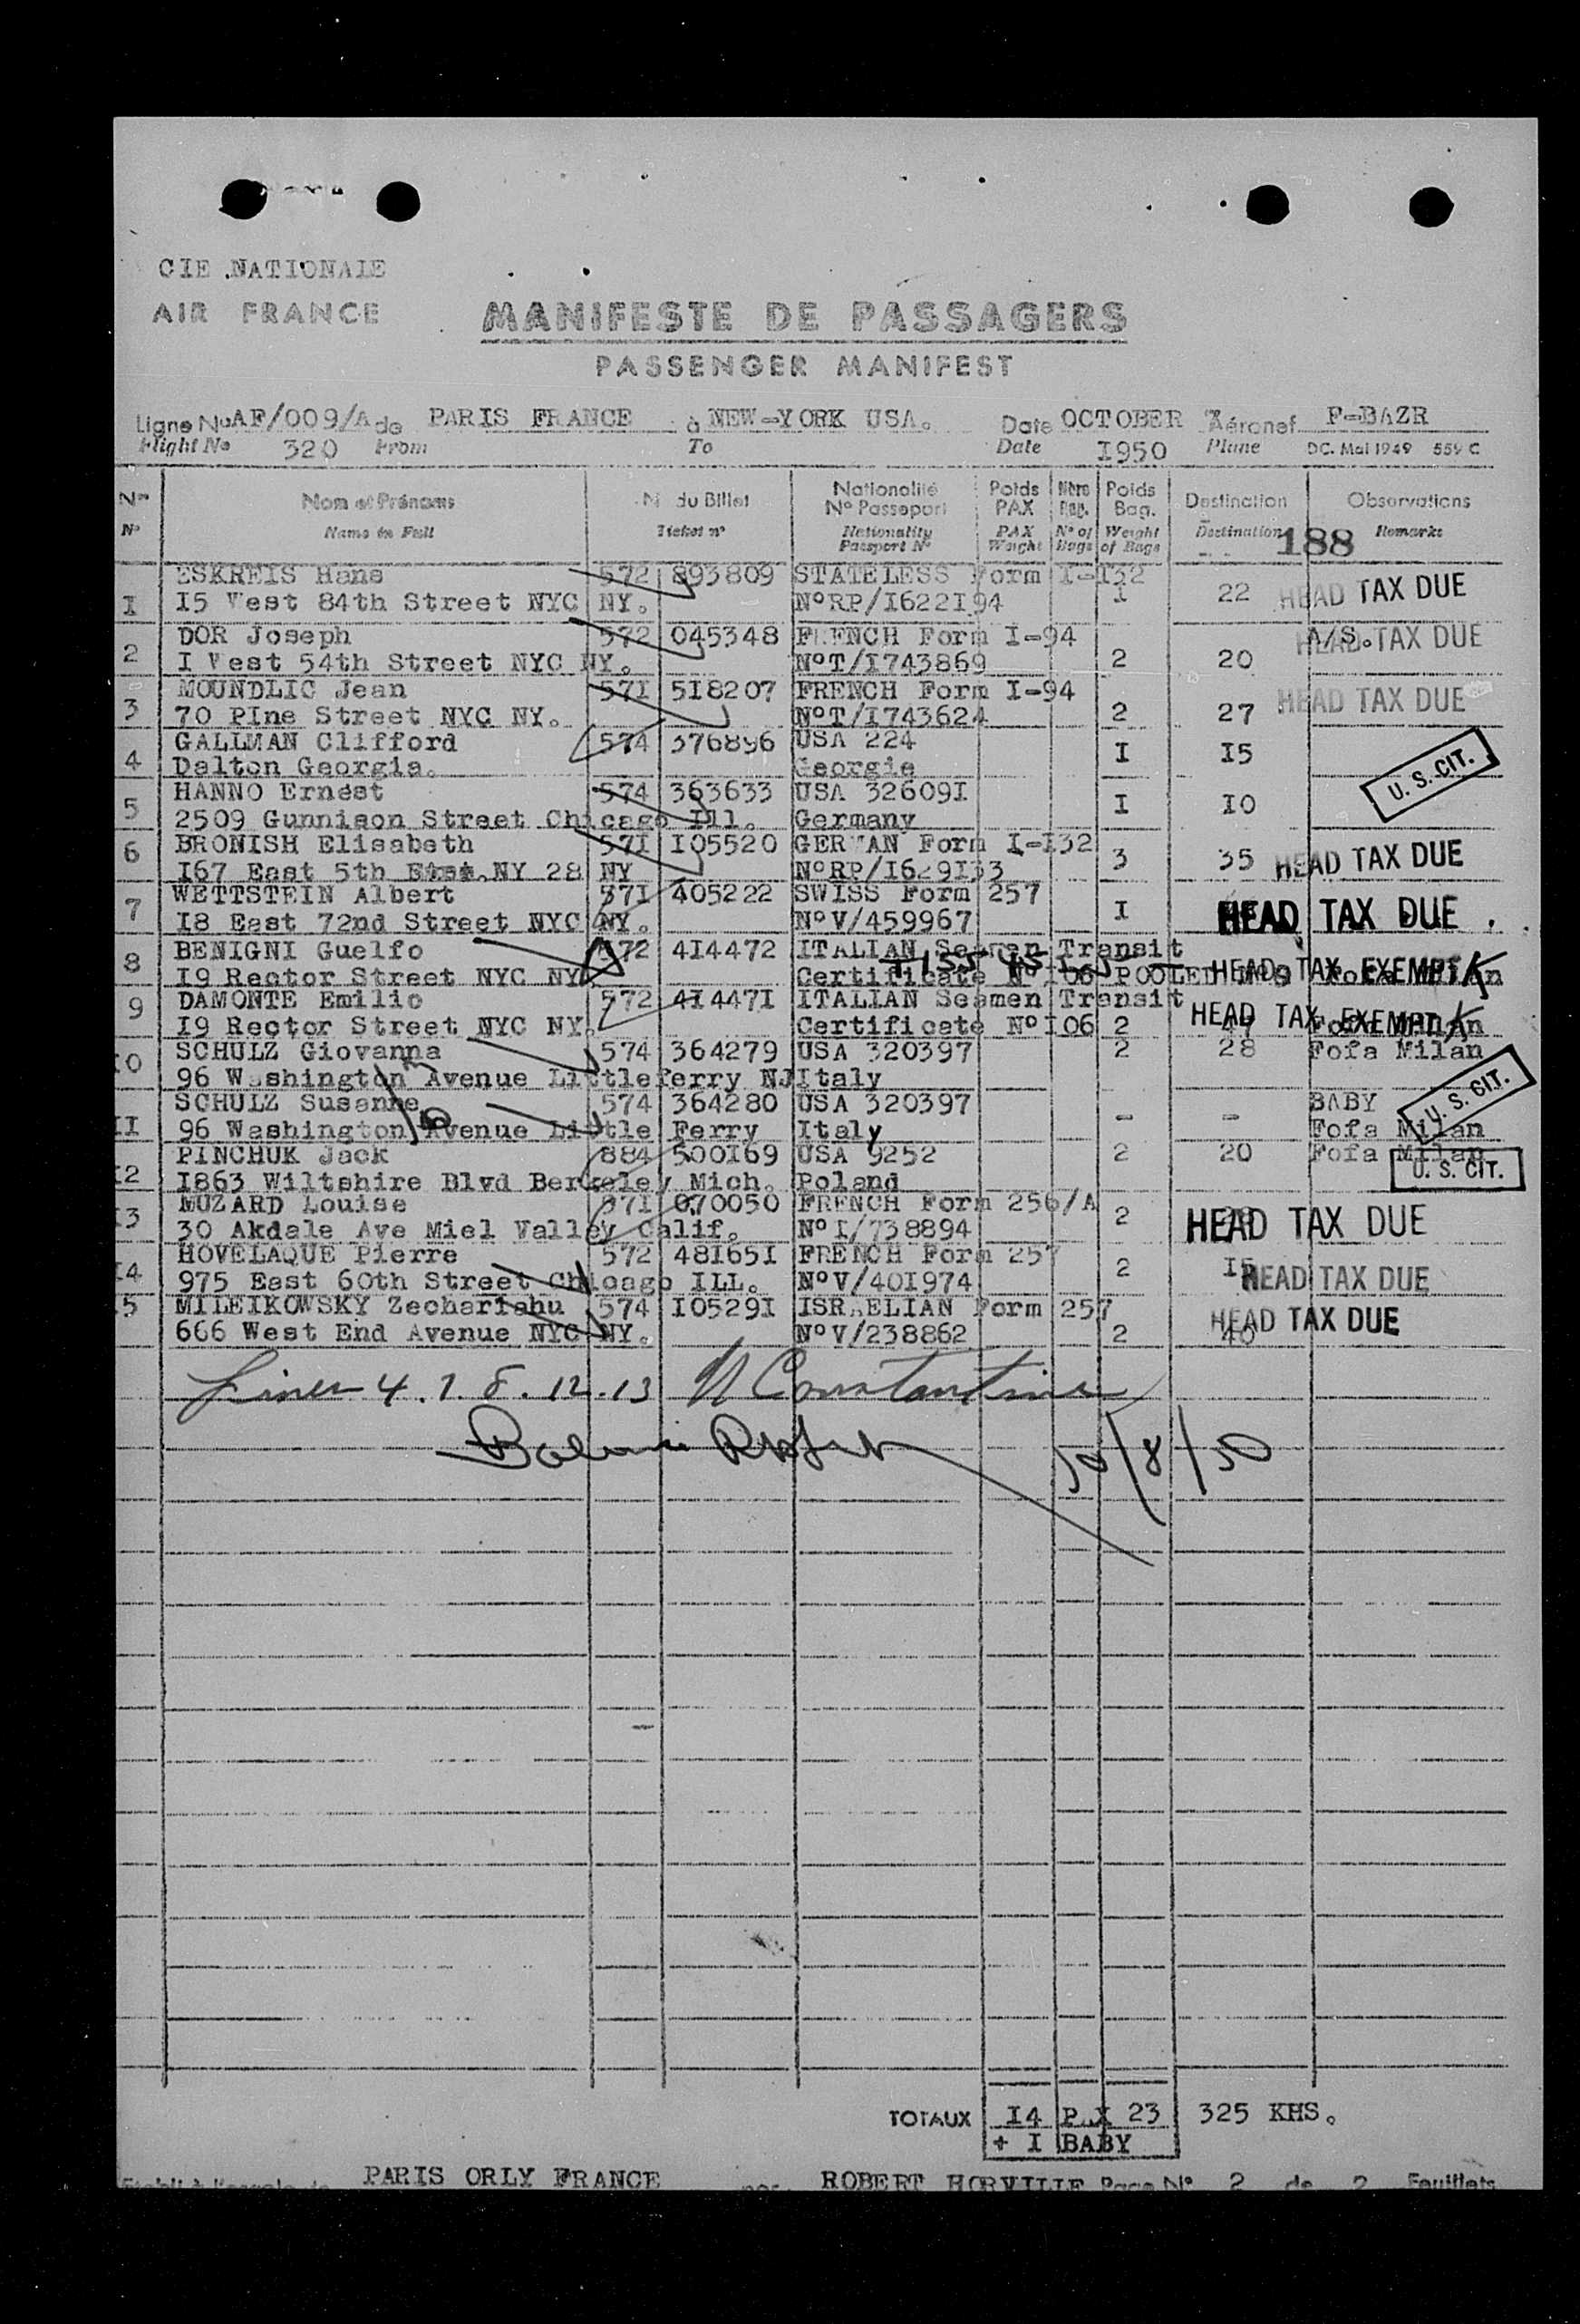 CIE NATIONALE
AIR FRANCE
MANIFESTE DE PASSAGERS
PASSENGER MANIFEST
Ligne No AF/009/A de PARIS FRANCE à NEW-YORK USA. Date OCTOBER Aéronef F-BAZR
Flight No 320 From To Date I950 Plane DC. Mai 1949 559 C
Nos Nom et Prénoms N du Billet Nationalité Poids Nbre Poids Destination Observations
No Passeport PAX Bag. Bag.
No Name in Full Ticket no Nationality PAX No of Weight Destination Remarks
Passport No Weight Bags of Bags
188
ESKREIS Hans 572 893809 STATELESS Form I-I32
I I5 West 84th Street NYC NY. No RP/I622I94 1 22 HEAD TAX DUE
DOR Joseph 572 045348 FRENCH Form I-94 A/S. HEAD TAX DUE
2 I West 54th Street NYC NY. No T/I743869 2 20
MOUNDLIC Jean 57I 5I8207 FRENCH Form I-94 HEAD TAX DUE
3 70 PIne Street NYC NY. No T/I743624 2 27
GALLMAN Clifford 574 376896 USA 224
4 Dalton Georgia. Georgia I I5 U. S. CIT.
HANNO Ernest 574 363633 USA 32609I
5 2509 Gunnison Street Chicago Ill. Germany I I0
BRONISH Elisabeth 57I I05520 GERMAN Form I-I32
6 I67 East 5th NY 28 NY No RP/I629I33 3 35 HEAD TAX DUE
WETTSTEIN Albert 57I 405222 SWISS Form 257
7 I8 East 72nd Street NYC NY. No V/459967 I HEAD TAX DUE
BENIGNI Guelfo 572 4I4472 ITALIAN Seamen Transit
8 I9 Rector Street NYC NY Certificate No I06 POOLED HEAD TAX EXEMPT Fofa Milan
DAMONTE Emilio 572 4I447I ITALIAN Seamen Transit
9 I9 Rector Street NYC NY. Certificate No I06 2 47 HEAD TAX EXEMPT Fofa Milan
SCHULZ Giovanna 574 364279 USA 320397 2 28 Fofa Milan
I0 96 Washington Avenue Littleferry NJ Italy
SCHULZ Susanne 574 364280 USA 320397 - - BABY U. S. CIT.
II 96 Washington Avenue Little Ferry Italy Fofa Milan
PINCHUK Jack 884 500I69 USA 9252 2 20 Fofa Milan
I2 I863 Wiltshire Blvd Berkeley Mich. Poland U. S. CIT.
MUZARD Louise 57I 070050 FRENCH Form 256/A
I3 30 Akdale Ave Miel Valley Calif. No I/738894 2 HEAD TAX DUE
HOVELAQUE Pierre 572 48I65I FRENCH Form 257
I4 975 East 60th Street Chicago ILL. No V/40I974 2 I5 HEAD TAX DUE
I5 MILEIKOWSKY Zechariahu 574 I0529I ISRAELIAN Form 257 HEAD TAX DUE
666 West End Avenue NYC NY. No V/238862 2 40
4. 7. 8. 12. 13 Constantine
10/8/50
TOTAUX I4 PAX 23 325 KHS.
+ I BABY
PARIS ORLY FRANCE ROBERT HORVILLE Page No 2 de 2 Feuillets